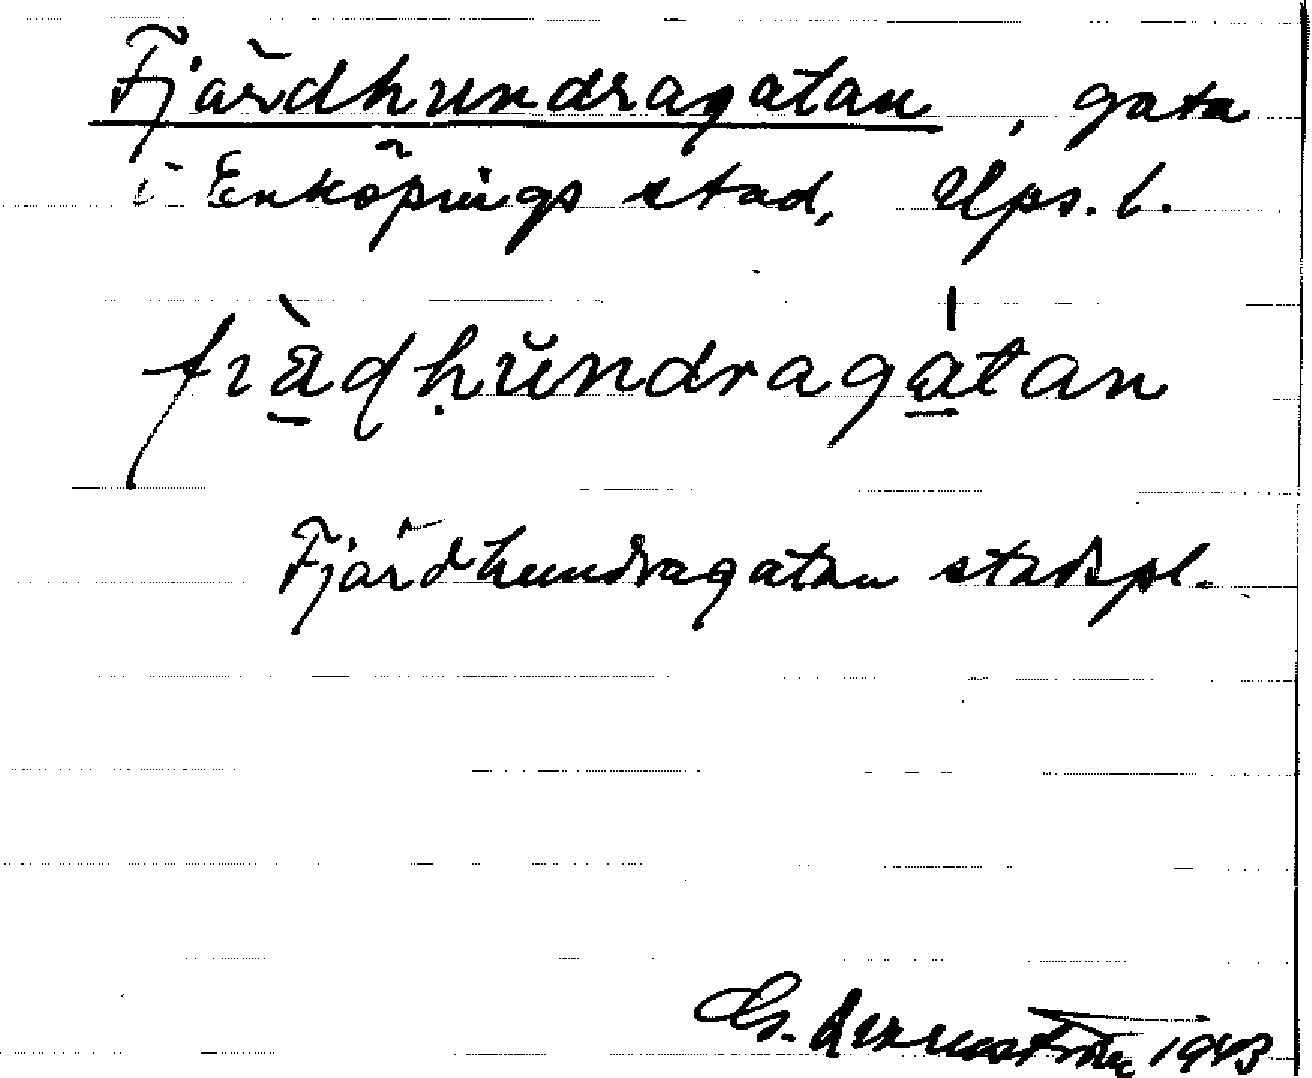 Fjärdhundragatan, gata
i Enköpings stad, Ups. l.
fiädhundragatan
Fjärdhundragatan stadspl.
1943